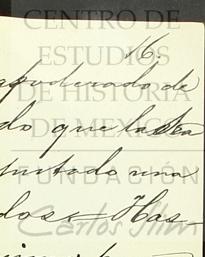 CENTRO DE
ESTUDIOS
DE HISTORIA
DE MEXICO
FUNDACIÓN
Carlos Slim
16.
apoderado de
do que
juntado una
dos = Has